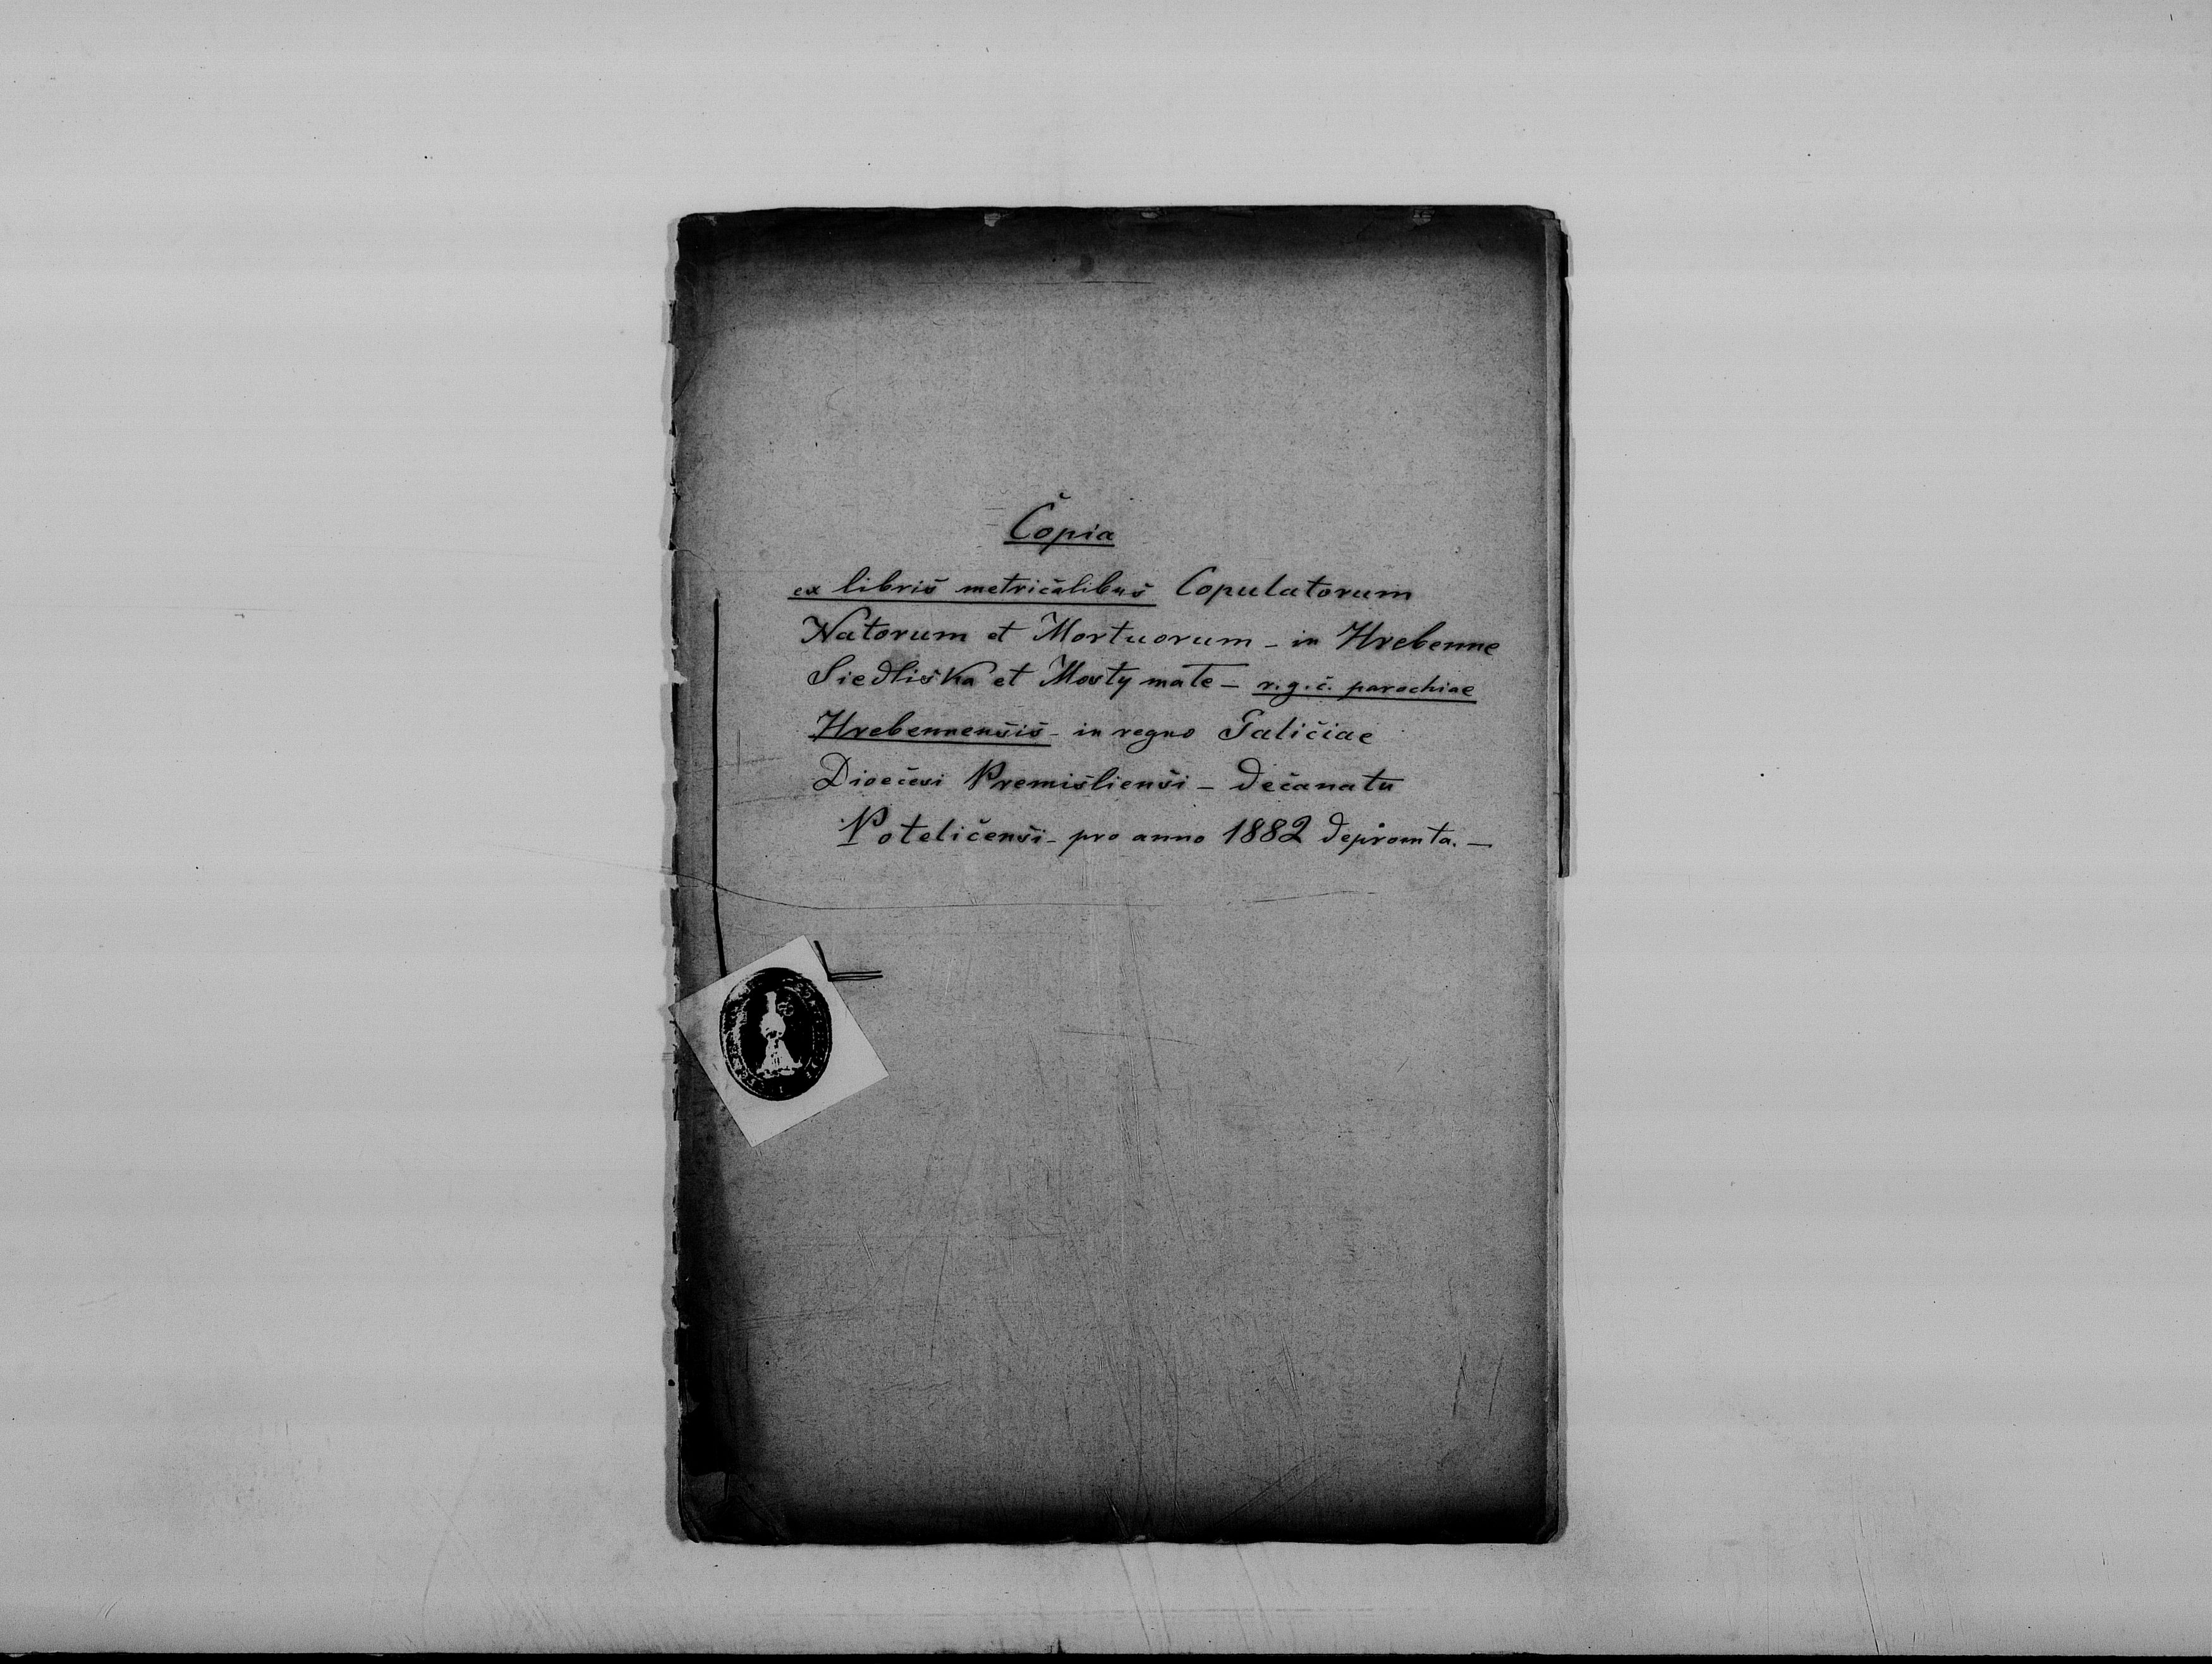 Čopia
ex libriš metričalibuš Copulatorum
Natorum et Mortuorum – in Hrebenne
Siedliška et Mosty małe – r. g. č. parochiae
Hrebennenšiš – in regno Galičiae
Dioečesi Premišlienši – dečanatu
Poteličenši – pro anno 1882 depromta. –